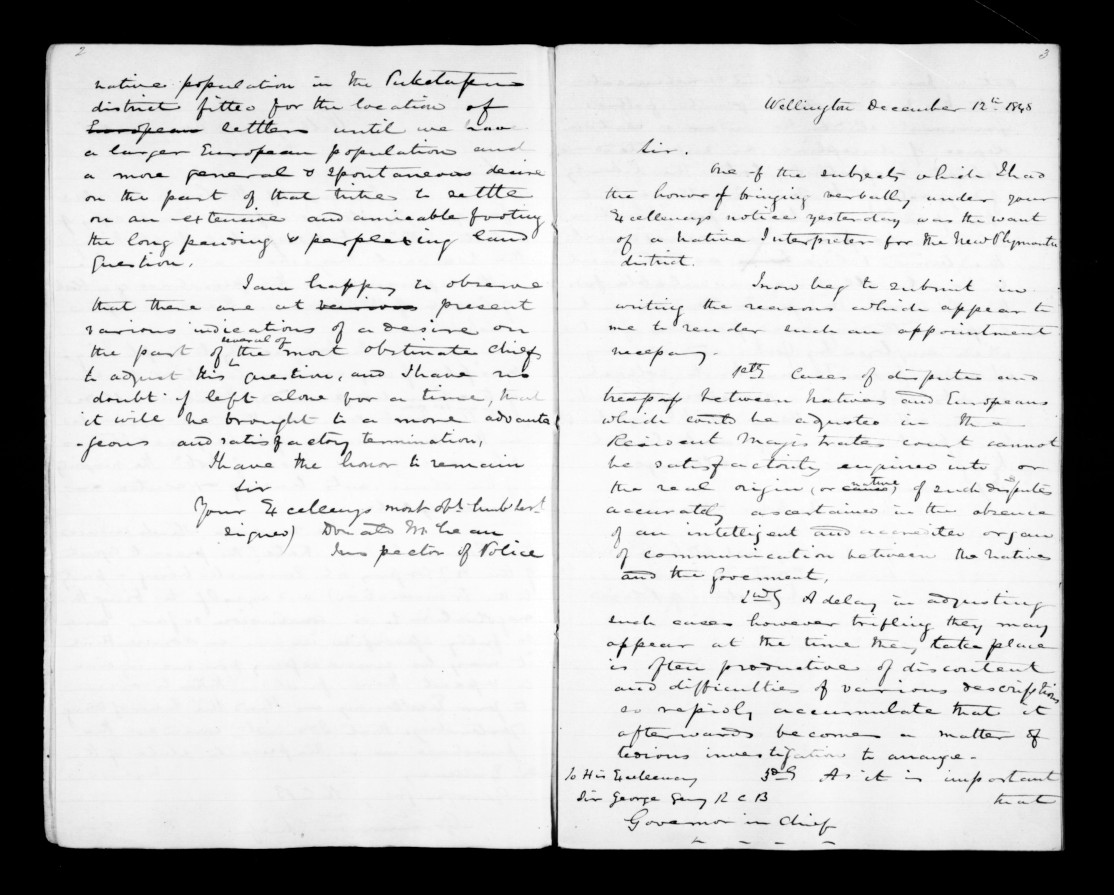 2
native population in the Puketapu
district fitted for the location of
European settlers until we have
a larger European population and
a more general & spontaneous desire
on the part of that tribe to settle
on an extensive and amicable footing
the long pending & perplexing land
question.
I am happy to observe
that there are at various present
various indications of a desire on
the part of several of the most obstinate chiefs
to adjust this question, and I have no
doubt if left alone for a time, that
it will be brought to a more advanta
-geous and satisfactory termination.
I have the honor to remain
Sir
Your Excellencys most obt. humb Sert
signed) Donald McLean
Inspector of Police
3
Wellington December 12th 1848
Sir.
One of the subjects which I had
the honor of bringing verbally under your
Excellencys notice yesterday, was the want
of a Native Interpreter for the New Plymouth
district.
I now beg to submit in
writing the reasons which appear to
me to render such an appointment
necessary.
1stly Cases of disputes and
trespass between Natives and Europeans
which could be adjusted in the
Resident Magistrates court cannot
be satisfactorily enquired into or
the real origin, or cause, nature of such disputes
accurately ascertained in the absence
of an intelligent and accredited organ
of communication between the Natives
and the Goverment,
2ndly A delay in adjusting
such cases however trifling they may
appear at the time they take place
is often productive of discontent
and difficulties of various descriptions
so rapidly accumulate that it
afterwards becomes a matter of
tedious investigation to arrange.
3dly As it is important
that
To His Excellency
Sir George Grey K C B
Governor in Chief